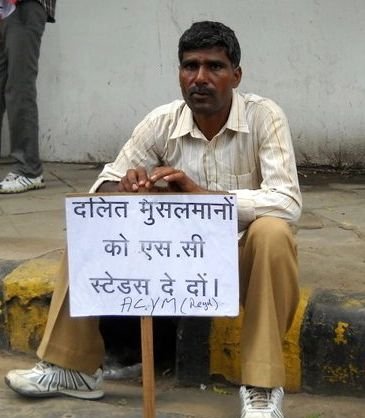 दलित मुसलमानों
को एस.सी
स्टेडस दे दों।
A.C.V.M (Regd)